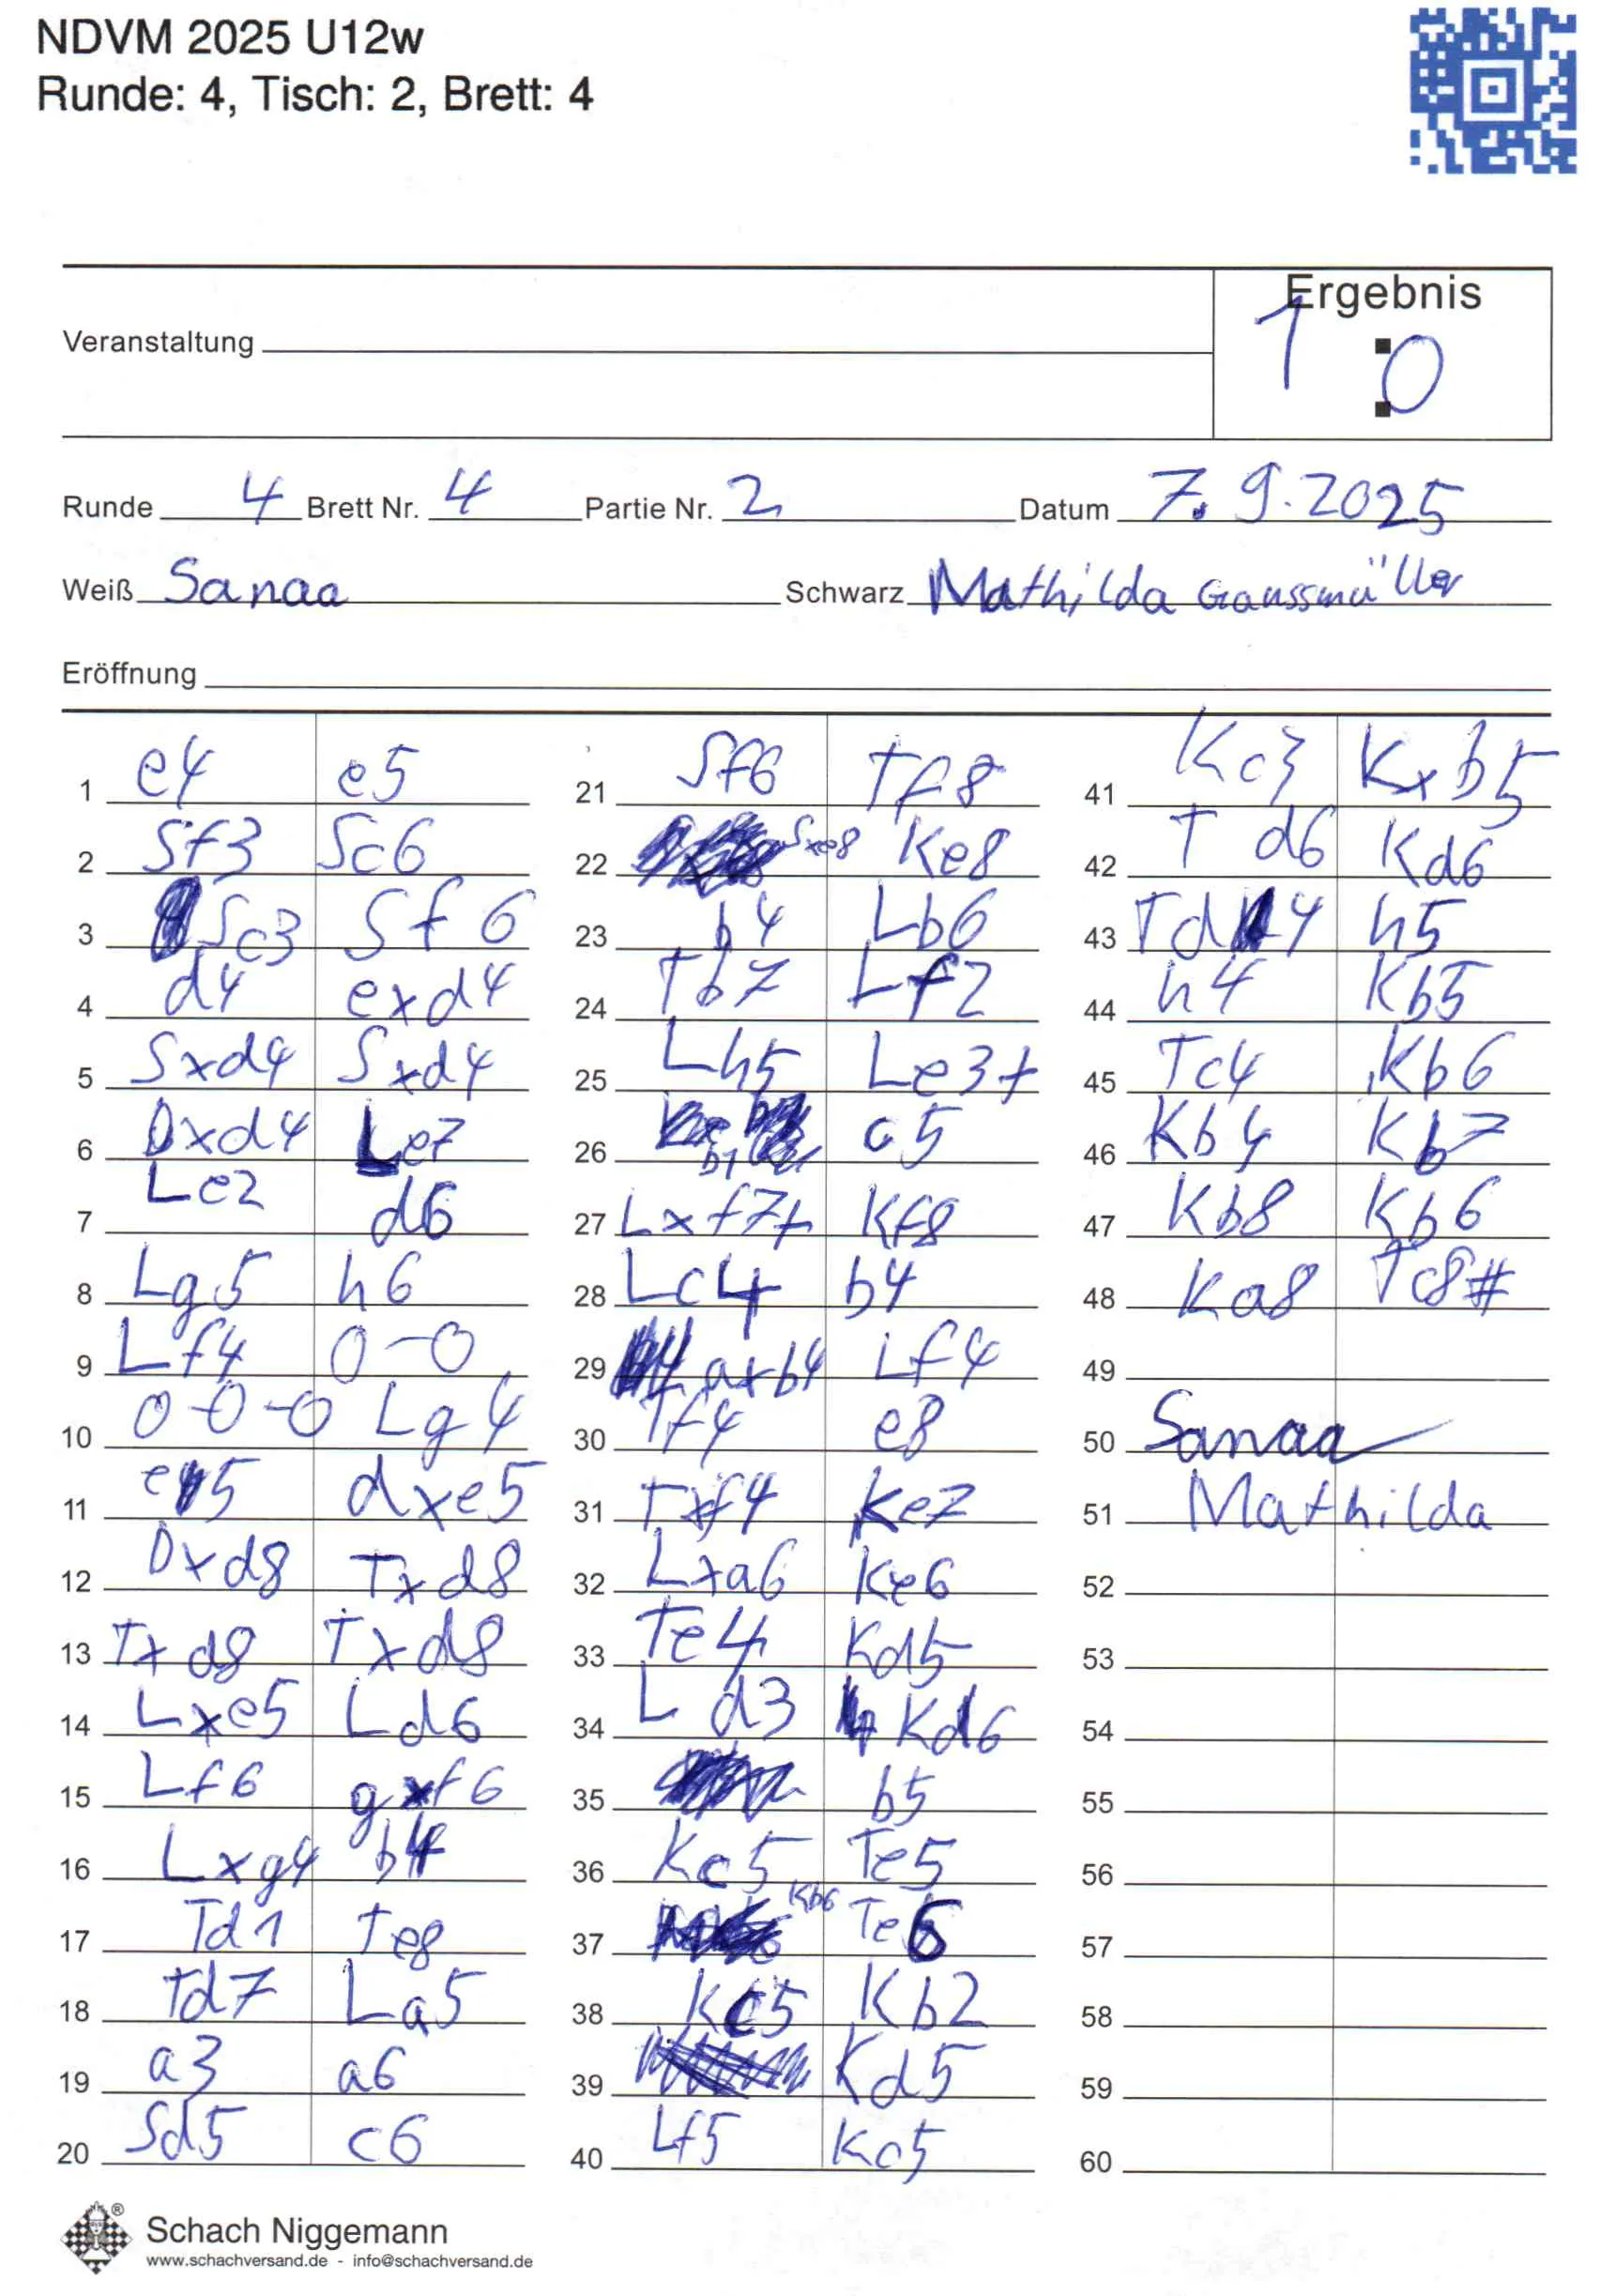 NDVM 2025 U12w
Runde: 4, Tisch: 2, Brett: 4
Ergebnis
1 : 0
Veranstaltung
Runde 4 Brett Nr. 4 Partie Nr. 2 Datum 7. 9. 2025
Weiß Sanaa Schwarz Mathilda Gaussmüller
Eröffnung
1 e4 e5
2 Sf3 Sc6
3 Sc3 Sf6
4 d4 exd4
5 Sxd4 Sxd4
6 Dxd4 Le7
7 Le2 d6
8 Lg5 h6
9 Lf4 0-0
10 0-0-0 Lg4
11 e5 dxe5
12 Dxd8 Txd8
13 Txd8 Txd8
14 Lxe5 Ld6
15 Lf6 gxf6
16 Lxg4 b4
17 Td1 Te8
18 Td7 La5
19 a3 a6
20 Sd5 c6
21 Sf6 Tf8
22 Sxe8 Ke8
23 b4 Lb6
24 Tb7 Lf2
25 Lh5 Le3+
26 b1 c5
27 Lxf7+ Kf8
28 Lc4 b4
29 axb4 Lf4
30 Tf4 e8
31 Txf4 Ke7
32 Lxa6 Ke6
33 Te4 Kd5
34 Ld3 Kd6
35 b5
36 Kc5 Te5
37 Kb6 Te6
38 Kc5 Kb2
39 Kd5
40 Lf5 Kc5
41 Kc3 Kxb5
42 Td6 Kd6
43 Td4 h5
44 h4 Kb5
45 Tc4 Kb6
46 Kb4 Kb7
47 Kb8 Kb6
48 Ka8 Tc8#
49
50 Sanaa
51 Mathilda
52
53
54
55
56
57
58
59
60
Schach Niggemann
www.schachversand.de - info@schachversand.de